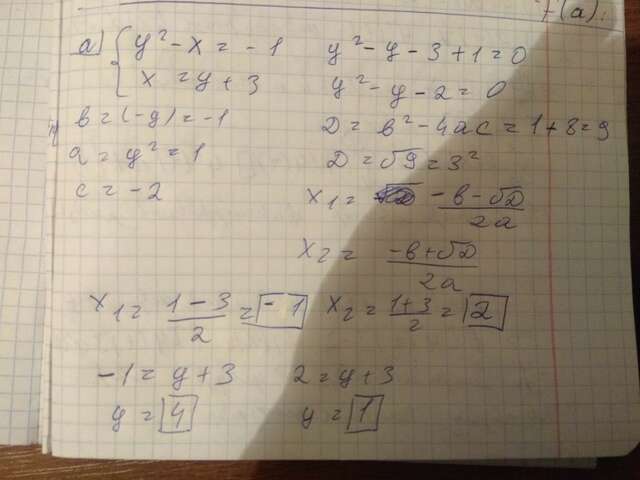 f(a).
а) { y² - x = - 1    y² - y - 3 + 1 = 0
x = y + 3    y² - y - 2 = 0
в = (-y) = -1    D = в² - 4ac = 1 + 8 = 9
a = y² = 1    D = √9 = 3²
c = -2    x₁ = -в - √D / 2a
x₂ = -в + √D / 2a
x₁ = 1 - 3 / 2 = -1    x₂ = 1 + 3 / 2 = 2
-1 = y + 3    2 = y + 3
y = 4    y = 1